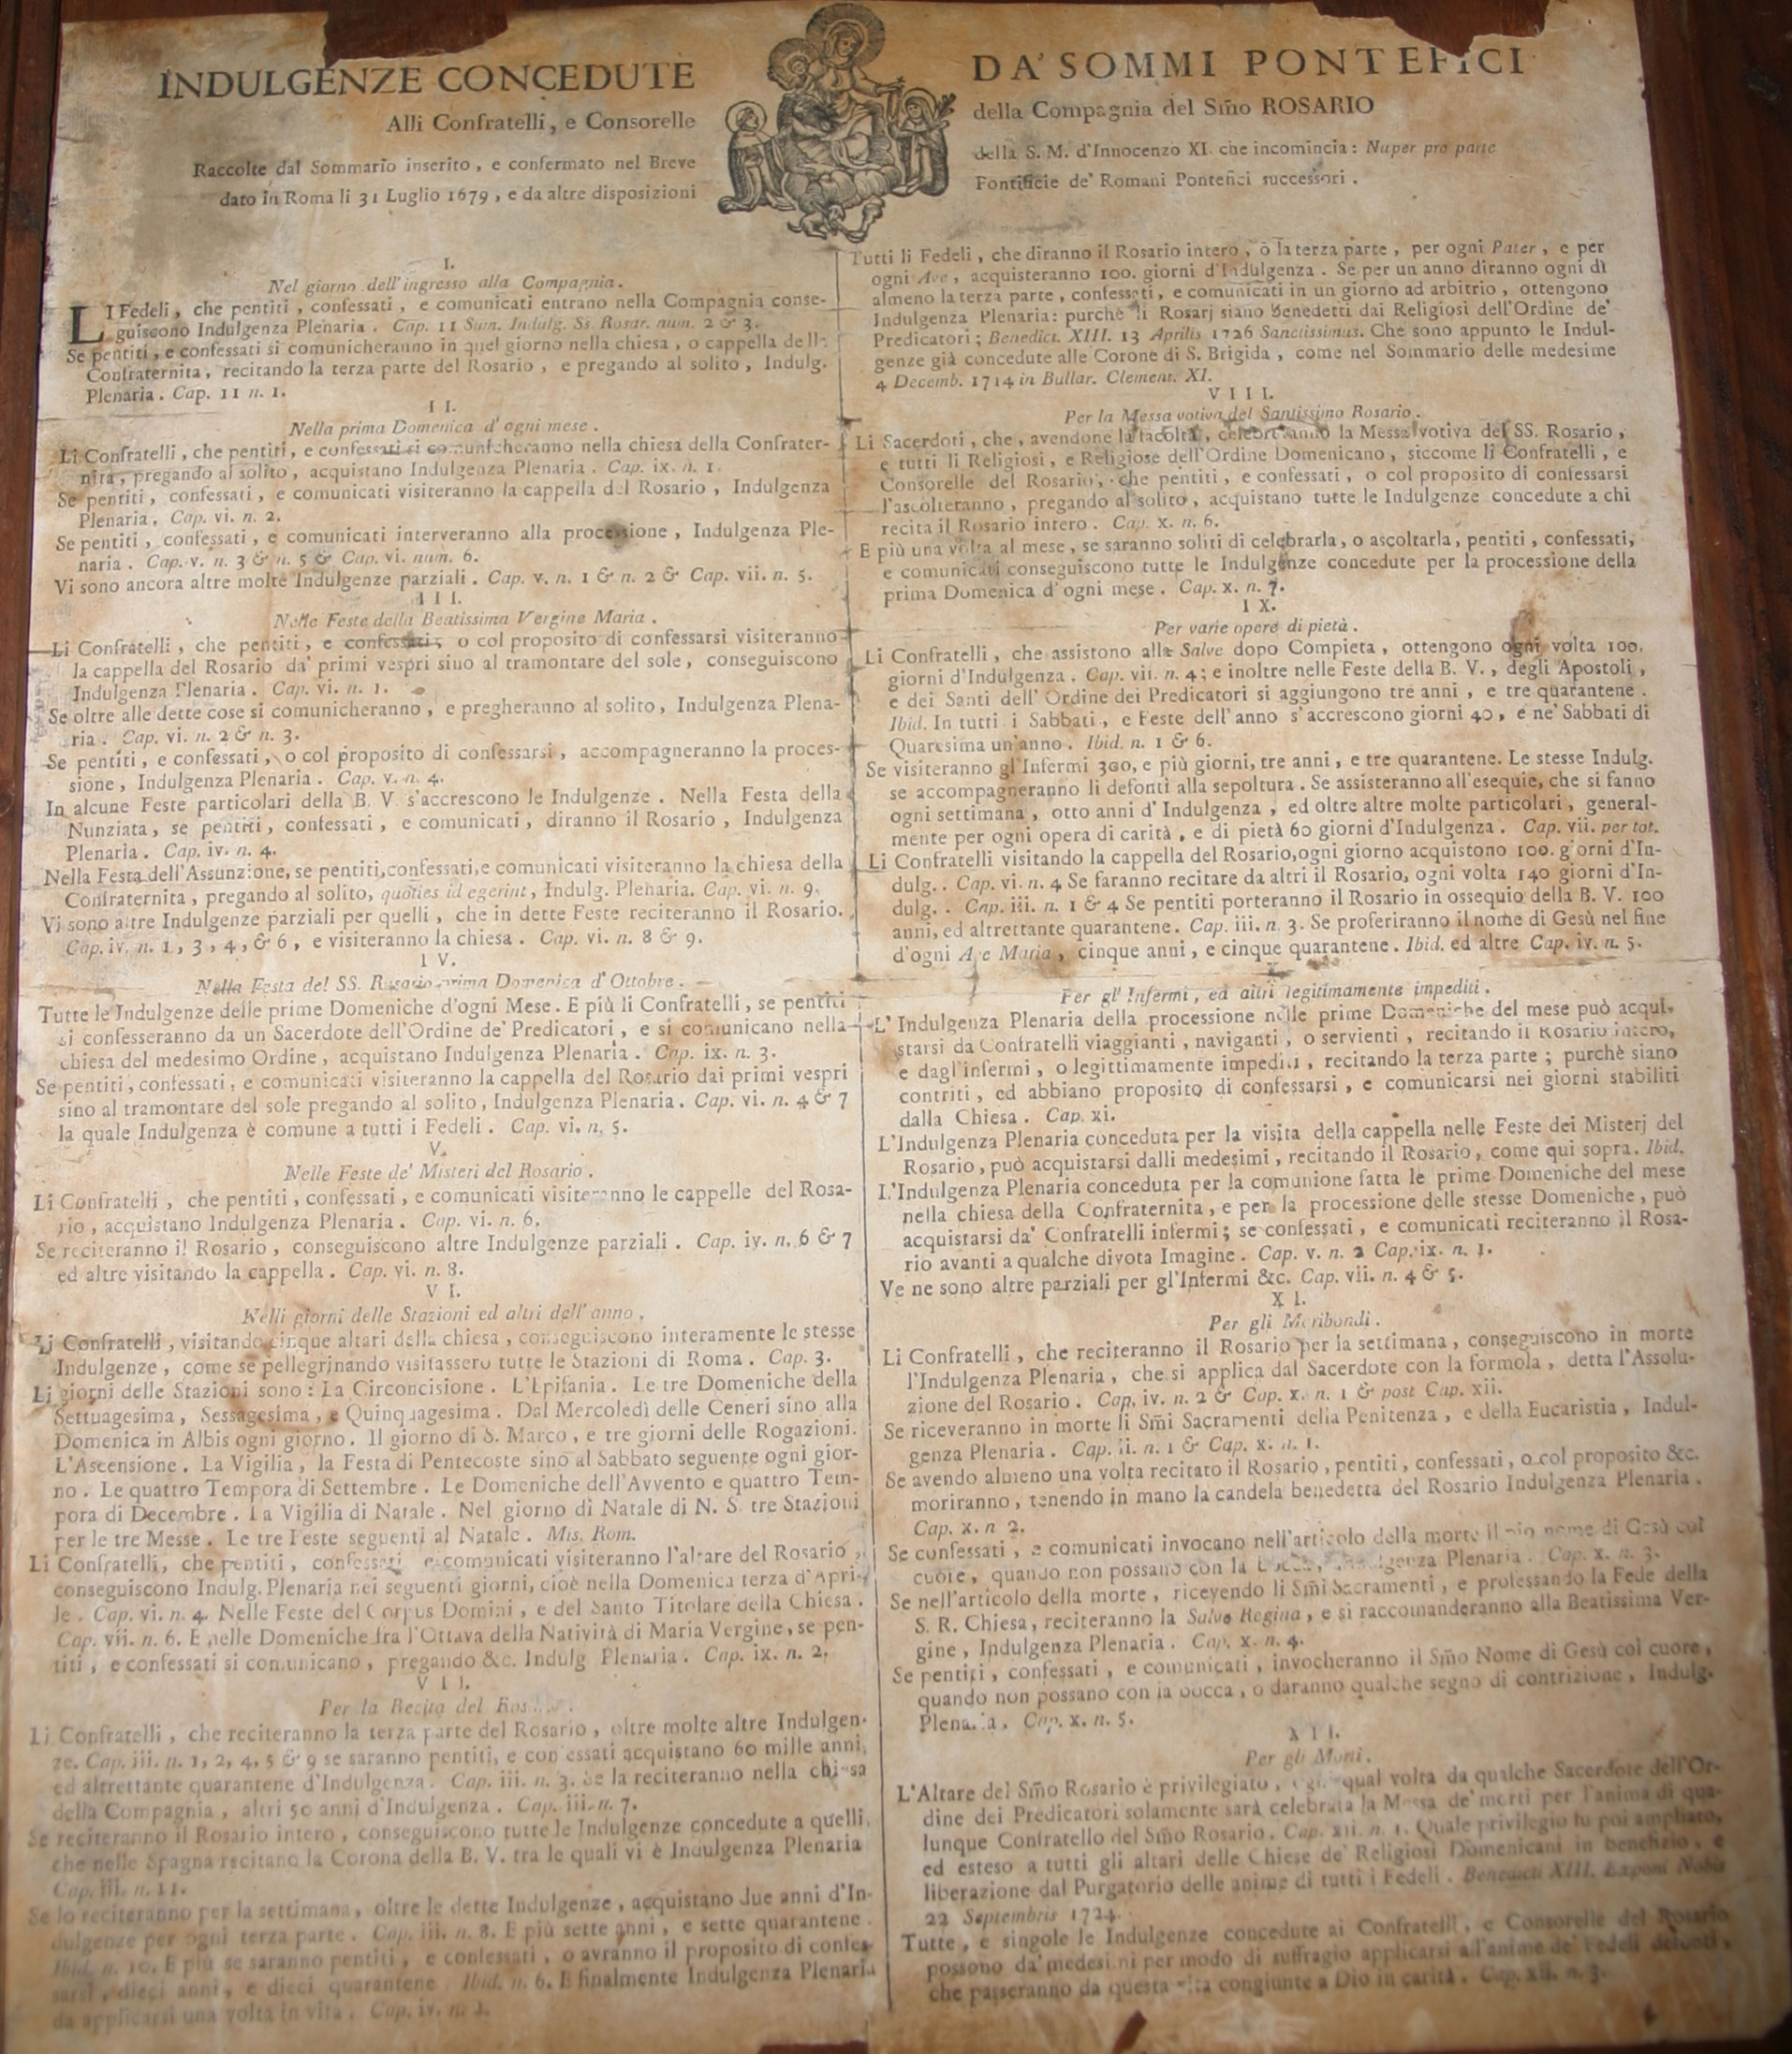 INDULGENZE CONCEDUTE
Alli Confratelli, e Consorelle
Raccolte dal Sommario inserito, e confermato nel Breve
dato in Roma li 31 Luglio 1679, e da altre disposizioni
DA' SOMMI PONTEFICI
della Compagnia del Sm̃o ROSARIO
della S. M. d'Innocenzo XI. che incomincia: Nuper pro parte
Pontificie de' Romani Pontefici successori.
I.
Nel giorno dell'ingresso alla Compagnia.
LI Fedeli, che pentiti, confessati, e comunicati entrano nella Compagnia conse-
guiscono Indulgenza Plenaria. Cap. 11 Sum. Indulg. Ss. Rosar. num. 2 & 3.
Se pentiti, e confessati si comunicheranno in quel giorno nella chiesa, o cappella della
Confraternita, recitando la terza parte del Rosario, e pregando al solito, Indulg.
Plenaria. Cap. 11 n. 1.
II.
Nella prima Domenica d'ogni mese.
Li Confratelli, che pentiti, e confessati si comunicheranno nella chiesa della Confrater-
nita, pregando al solito, acquistano Indulgenza Plenaria. Cap. ix. n. 1.
Se pentiti, confessati, e comunicati visiteranno la cappella del Rosario, Indulgenza
Plenaria, Cap. vi. n. 2.
Se pentiti, confessati, e comunicati interveranno alla processione, Indulgenza Ple-
naria. Cap. v. n. 3 & n. 5 & Cap. vi. num. 6.
Vi sono ancora altre molte Indulgenze parziali. Cap. v. n. 1 & n. 2 & Cap. vii. n. 5.
III.
Nelle Feste della Beatissima Vergine Maria.
Li Confratelli, che pentiti, e confessati, o col proposito di confessarsi visiteranno
la cappella del Rosario da' primi vespri sino al tramontare del sole, conseguiscono
Indulgenza Plenaria. Cap. vi. n. 1.
Se oltre alle dette cose si comunicheranno, e pregheranno al solito, Indulgenza Plena-
ria. Cap. vi. n. 2 & n. 3.
Se pentiti, e confessati, o col proposito di confessarsi, accompagneranno la proces-
sione, Indulgenza Plenaria. Cap. v. n. 4.
In alcune Feste particolari della B. V. s'accrescono le Indulgenze. Nella Festa della
Nunziata, se pentiti, confessati, e comunicati, diranno il Rosario, Indulgenza
Plenaria. Cap. iv. n. 4.
Nella Festa dell'Assunzione, se pentiti, confessati, e comunicati visiteranno la chiesa della
Confraternita, pregando al solito, quoties id egerint, Indulg. Plenaria. Cap. vi. n. 9.
Vi sono altre Indulgenze parziali per quelli, che in dette Feste reciteranno il Rosario.
Cap. iv. n. 1, 3, 4, & 6, e visiteranno la chiesa. Cap. vi. n. 8 & 9.
IV.
Nella Festa del SS. Rosario prima Domenica d'Ottobre.
Tutte le Indulgenze delle prime Domeniche d'ogni Mese. E più li Confratelli, se pentiti
si confesseranno da un Sacerdote dell'Ordine de' Predicatori, e si comunicano nella
chiesa del medesimo Ordine, acquistano Indulgenza Plenaria. Cap. ix. n. 3.
Se pentiti, confessati, e comunicati visiteranno la cappella del Rosario dai primi vespri
sino al tramontare del sole pregando al solito, Indulgenza Plenaria. Cap. vi. n. 4 & 7
la quale Indulgenza è comune a tutti i Fedeli. Cap. vi. n. 5.
V.
Nelle Feste de' Misteri del Rosario.
Li Confratelli, che pentiti, confessati, e comunicati visiteranno le cappelle del Rosa-
rio, acquistano Indulgenza Plenaria. Cap. vi. n. 6.
Se reciteranno il Rosario, conseguiscono altre Indulgenze parziali. Cap. iv. n. 6 & 7
ed altre visitando la cappella. Cap. vi. n. 8.
VI.
Nelli giorni delle Stazioni ed altri dell'anno.
Li Confratelli, visitando cinque altari della chiesa, conseguiscono interamente le stesse
Indulgenze, come se pellegrinando visitassero tutte le Stazioni di Roma. Cap. 3.
Li giorni delle Stazioni sono: La Circoncisione. L'Epifania. Le tre Domeniche della
Settuagesima, Sessagesima, e Quinquagesima. Dal Mercoledì delle Ceneri sino alla
Domenica in Albis ogni giorno. Il giorno di S. Marco, e tre giorni delle Rogazioni.
L'Ascensione. La Vigilia, la Festa di Pentecoste sino al Sabbato seguente ogni gior-
no. Le quattro Tempora di Settembre. Le Domeniche dell'Avvento e quattro Tem-
pora di Decembre. La Vigilia di Natale. Nel giorno di Natale di N. S. tre Stazioni
per le tre Messe. Le tre Feste seguenti al Natale. Mis. Rom.
Li Confratelli, che pentiti, confessati, e comunicati visiteranno l'altare del Rosario,
conseguiscono Indulg. Plenaria nei seguenti giorni, cioè nella Domenica terza d'Apri-
le. Cap. vi. n. 4. Nelle Feste del Corpus Domini, e del Santo Titolare della Chiesa.
Cap. vii. n. 6. E nelle Domeniche fra l'Ottava della Natività di Maria Vergine, se pen-
titi, e confessati si comunicano, pregando &c. Indulg Plenaria. Cap. ix. n. 2.
VII.
Per la Recita del
Li Confratelli, che reciteranno la terza parte del Rosario, oltre molte altre Indulgen-
ze. Cap. iii. n. 1, 2, 4, 5 & 9 se saranno pentiti, e confessati acquistano 60 mille anni,
ed altrettante quarantene d'Indulgenza. Cap. iii. n. 3. Se la reciteranno nella chiesa
della Compagnia, altri 50 anni d'Indulgenza. Cap. iii. n. 7.
Se reciteranno il Rosario intero, conseguiscono tutte le Indulgenze concedute a quelli,
che nelle Spagna recitano la Corona della B. V. tra le quali vi è Indulgenza Plenaria
Cap. iii. n. 11.
Se lo reciteranno per la settimana, oltre le dette Indulgenze, acquistano due anni d'In-
dulgenze per ogni terza parte. Cap. iii. n. 8. E più sette anni, e sette quarantene.
Ibid. n. 10. E più se saranno pentiti, e confessati, o avranno il proposito di confes-
sarsi, dieci anni, e dieci quarantene Ibid. n. 6. E finalmente Indulgenza Plenaria
da applicarsi una volta in vita. Cap. iv. n.
Tutti li Fedeli, che diranno il Rosario intero, o la terza parte, per ogni Pater, e per
ogni Ave, acquisteranno 100. giorni d'Indulgenza. Se per un anno diranno ogni dì
almeno la terza parte, confessati, e comunicati in un giorno ad arbitrio, ottengono
Indulgenza Plenaria: purchè li Rosarj siano Benedetti dai Religiosi dell'Ordine de'
Predicatori; Benedict. XIII. 13 Aprilis 1726 Sanctissimus. Che sono appunto le Indul-
genze già concedute alle Corone di S. Brigida, come nel Sommario delle medesime
4 Decemb. 1714 in Bullar. Clement. XI.
VIII.
Per la Messa votiva del Santissimo Rosario.
Li Sacerdoti, che, avendone la facoltà, celebreranno la Messa votiva del SS. Rosario,
e tutti li Religiosi, e Religiose dell'Ordine Domenicano, siccome li Confratelli, e
Consorelle del Rosario, che pentiti, e confessati, o col proposito di confessarsi
l'ascolteranno, pregando al solito, acquistano tutte le Indulgenze concedute a chi
recita il Rosario intero. Cap. x. n. 6.
E più una volta al mese, se saranno soliti di celebrarla, o ascoltarla, pentiti, confessati,
e comunicati conseguiscono tutte le Indulgenze concedute per la processione della
prima Domenica d'ogni mese. Cap. x. n. 7.
IX.
Per varie opere di pietà.
Li Confratelli, che assistono alla Salve dopo Compieta, ottengono ogni volta 100.
giorni d'Indulgenza. Cap. vii. n. 4; e inoltre nelle Feste della B. V., degli Apostoli,
e dei Santi dell'Ordine dei Predicatori si aggiungono tre anni, e tre quarantene.
Ibid. In tutti i Sabbati, e Feste dell'anno s'accrescono giorni 40, e ne' Sabbati di
Quaresima un'anno. Ibid. n. 1 & 6.
Se visiteranno gl'Infermi 300, e più giorni, tre anni, e tre quarantene. Le stesse Indulg.
se accompagneranno li defonti alla sepoltura. Se assisteranno all'esequie, che si fanno
ogni settimana, otto anni d'Indulgenza, ed oltre altre molte particolari, general-
mente per ogni opera di carità, e di pietà 60 giorni d'Indulgenza. Cap. vii. per tot.
Li Confratelli visitando la cappella del Rosario, ogni giorno acquistono 100. giorni d'In-
dulg.. Cap. vi. n. 4 Se faranno recitare da altri il Rosario, ogni volta 140 giorni d'In-
dulg.. Cap. iii. n. 1 & 4 Se pentiti porteranno il Rosario in ossequio della B. V. 100
anni, ed altrettante quarantene. Cap. iii. n. 3. Se proferiranno il nome di Gesù nel fine
d'ogni Ave Maria, cinque anni, e cinque quarantene. Ibid. ed altre Cap. iv. n. 5.
X.
Per gl'Infermi, ed altri legitimamente impediti.
L'Indulgenza Plenaria della processione nelle prime Domeniche del mese può acqui-
starsi da Confratelli viaggianti, naviganti, o servienti, recitando il Rosario intero,
e dagl'infermi, o legittimamente impediti, recitando la terza parte; purchè siano
contriti, ed abbiano proposito di confessarsi, e comunicarsi nei giorni stabiliti
dalla Chiesa. Cap. xi.
L'Indulgenza Plenaria conceduta per la visita della cappella nelle Feste dei Misterj del
Rosario, può acquistarsi dalli medesimi, recitando il Rosario, come qui sopra. Ibid.
L'Indulgenza Plenaria conceduta per la comunione fatta le prime Domeniche del mese
nella chiesa della Confraternita, e per la processione delle stesse Domeniche, può
acquistarsi da' Confratelli infermi; se confessati, e comunicati reciteranno il Rosa-
rio avanti a qualche divota Imagine. Cap. v. n. 2 Cap. ix. n. 1.
Ve ne sono altre parziali per gl'Infermi &c. Cap. vii. n. 4 & 5.
XI.
Per gli Moribondi.
Li Confratelli, che reciteranno il Rosario per la settimana, conseguiscono in morte
l'Indulgenza Plenaria, che si applica dal Sacerdote con la formola, detta l'Assolu-
zione del Rosario. Cap. iv. n. 2 & Cap. x. n. 1 & post Cap. xii.
Se riceveranno in morte li Sm̃i Sacramenti della Penitenza, e della Eucaristia, Indul-
genza Plenaria. Cap. ii. n. 1 & Cap. x. n. 1.
Se avendo almeno una volta recitato il Rosario, pentiti, confessati, o col proposito &c.
moriranno, tenendo in mano la candela benedetta del Rosario Indulgenza Plenaria.
Cap. x. n 2.
Se confessati, e comunicati invocano nell'articolo della morte il pio nome di Gesù col
cuore, quando non possano con la bocca, Indulgenza Plenaria. Cap. x. n. 3.
Se nell'articolo della morte, ricevendo li Sm̃i Sacramenti, e professando la Fede della
S. R. Chiesa, reciteranno la Salve Regina, e si raccomanderanno alla Beatissima Ver-
gine, Indulgenza Plenaria. Cap. x. n. 4.
Se pentiti, confessati, e comunicati, invocheranno il Sm̃o Nome di Gesù col cuore,
quando non possano con la bocca, o daranno qualche segno di contrizione, Indulg.
Plenaria. Cap. x. n. 5.
XII.
Per gli Morti.
L'Altare del Sm̃o Rosario è privilegiato, ogni qual volta da qualche Sacerdote dell'Or-
dine dei Predicatori solamente sarà celebrata la Messa de' morti per l'anima di qua-
lunque Confratello del Sm̃o Rosario. Cap. xii. n. 1. Quale privilegio fu poi ampliato,
ed esteso a tutti gli altari delle Chiese de' Religiosi Domenicani in benefizio, e
liberazione dal Purgatorio delle anime di tutti i Fedeli. Benedicti XIII. Exponi Nobis
22 Septembris 1724.
Tutte, e singole le Indulgenze concedute ai Confratelli, e Consorelle del Rosario
possono da' medesimi per modo di suffragio applicarsi all'anime de' Fedeli defonti,
che passeranno da questa vita congiunte a Dio in carità. Cap. xii. n. 3.